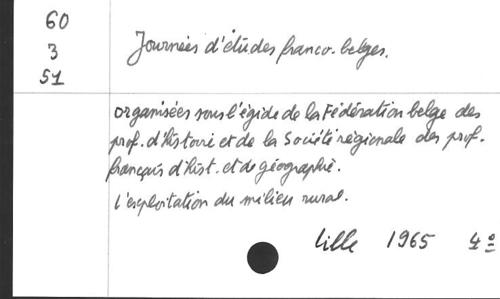 60
3
51
Journées d'études franco-belges.
organisées sous l'égide de la Fédération belge des
prof. d'histoire et de la Société régionale des prof.
français d'hist. et de géographie.
L'exploitation du milieu rural.
Lille 1965 4º